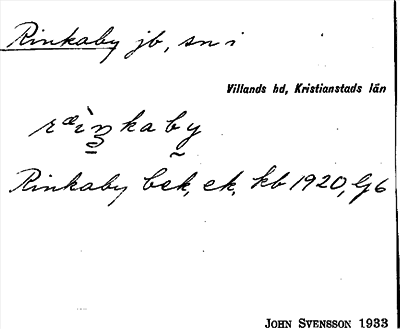 Rinkaby jb, sn i
Villands hd, Kristianstads län
Rinkaby bek, ek, kb 1920, Gb
JOHN SVENSSON 1933